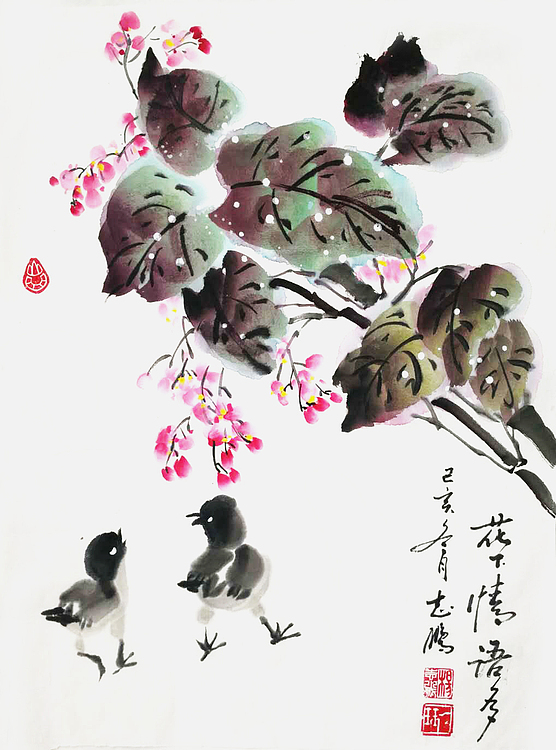 花下情语多
己亥冬月志鹏